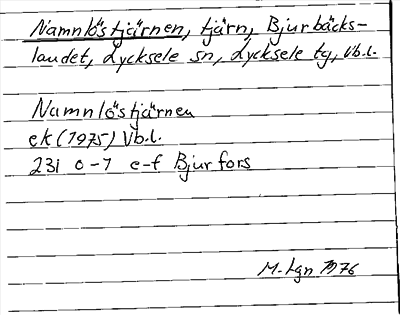 Namnlöstjärnen, tjärn, Bjurbäcks-
landet, Lycksele sn, Lycksele tg, Vb.l.
Namnlöstjärnen
ek (1975) Vb.l.
23i 0-1 e-f Bjurfors
M. Lgn 1976